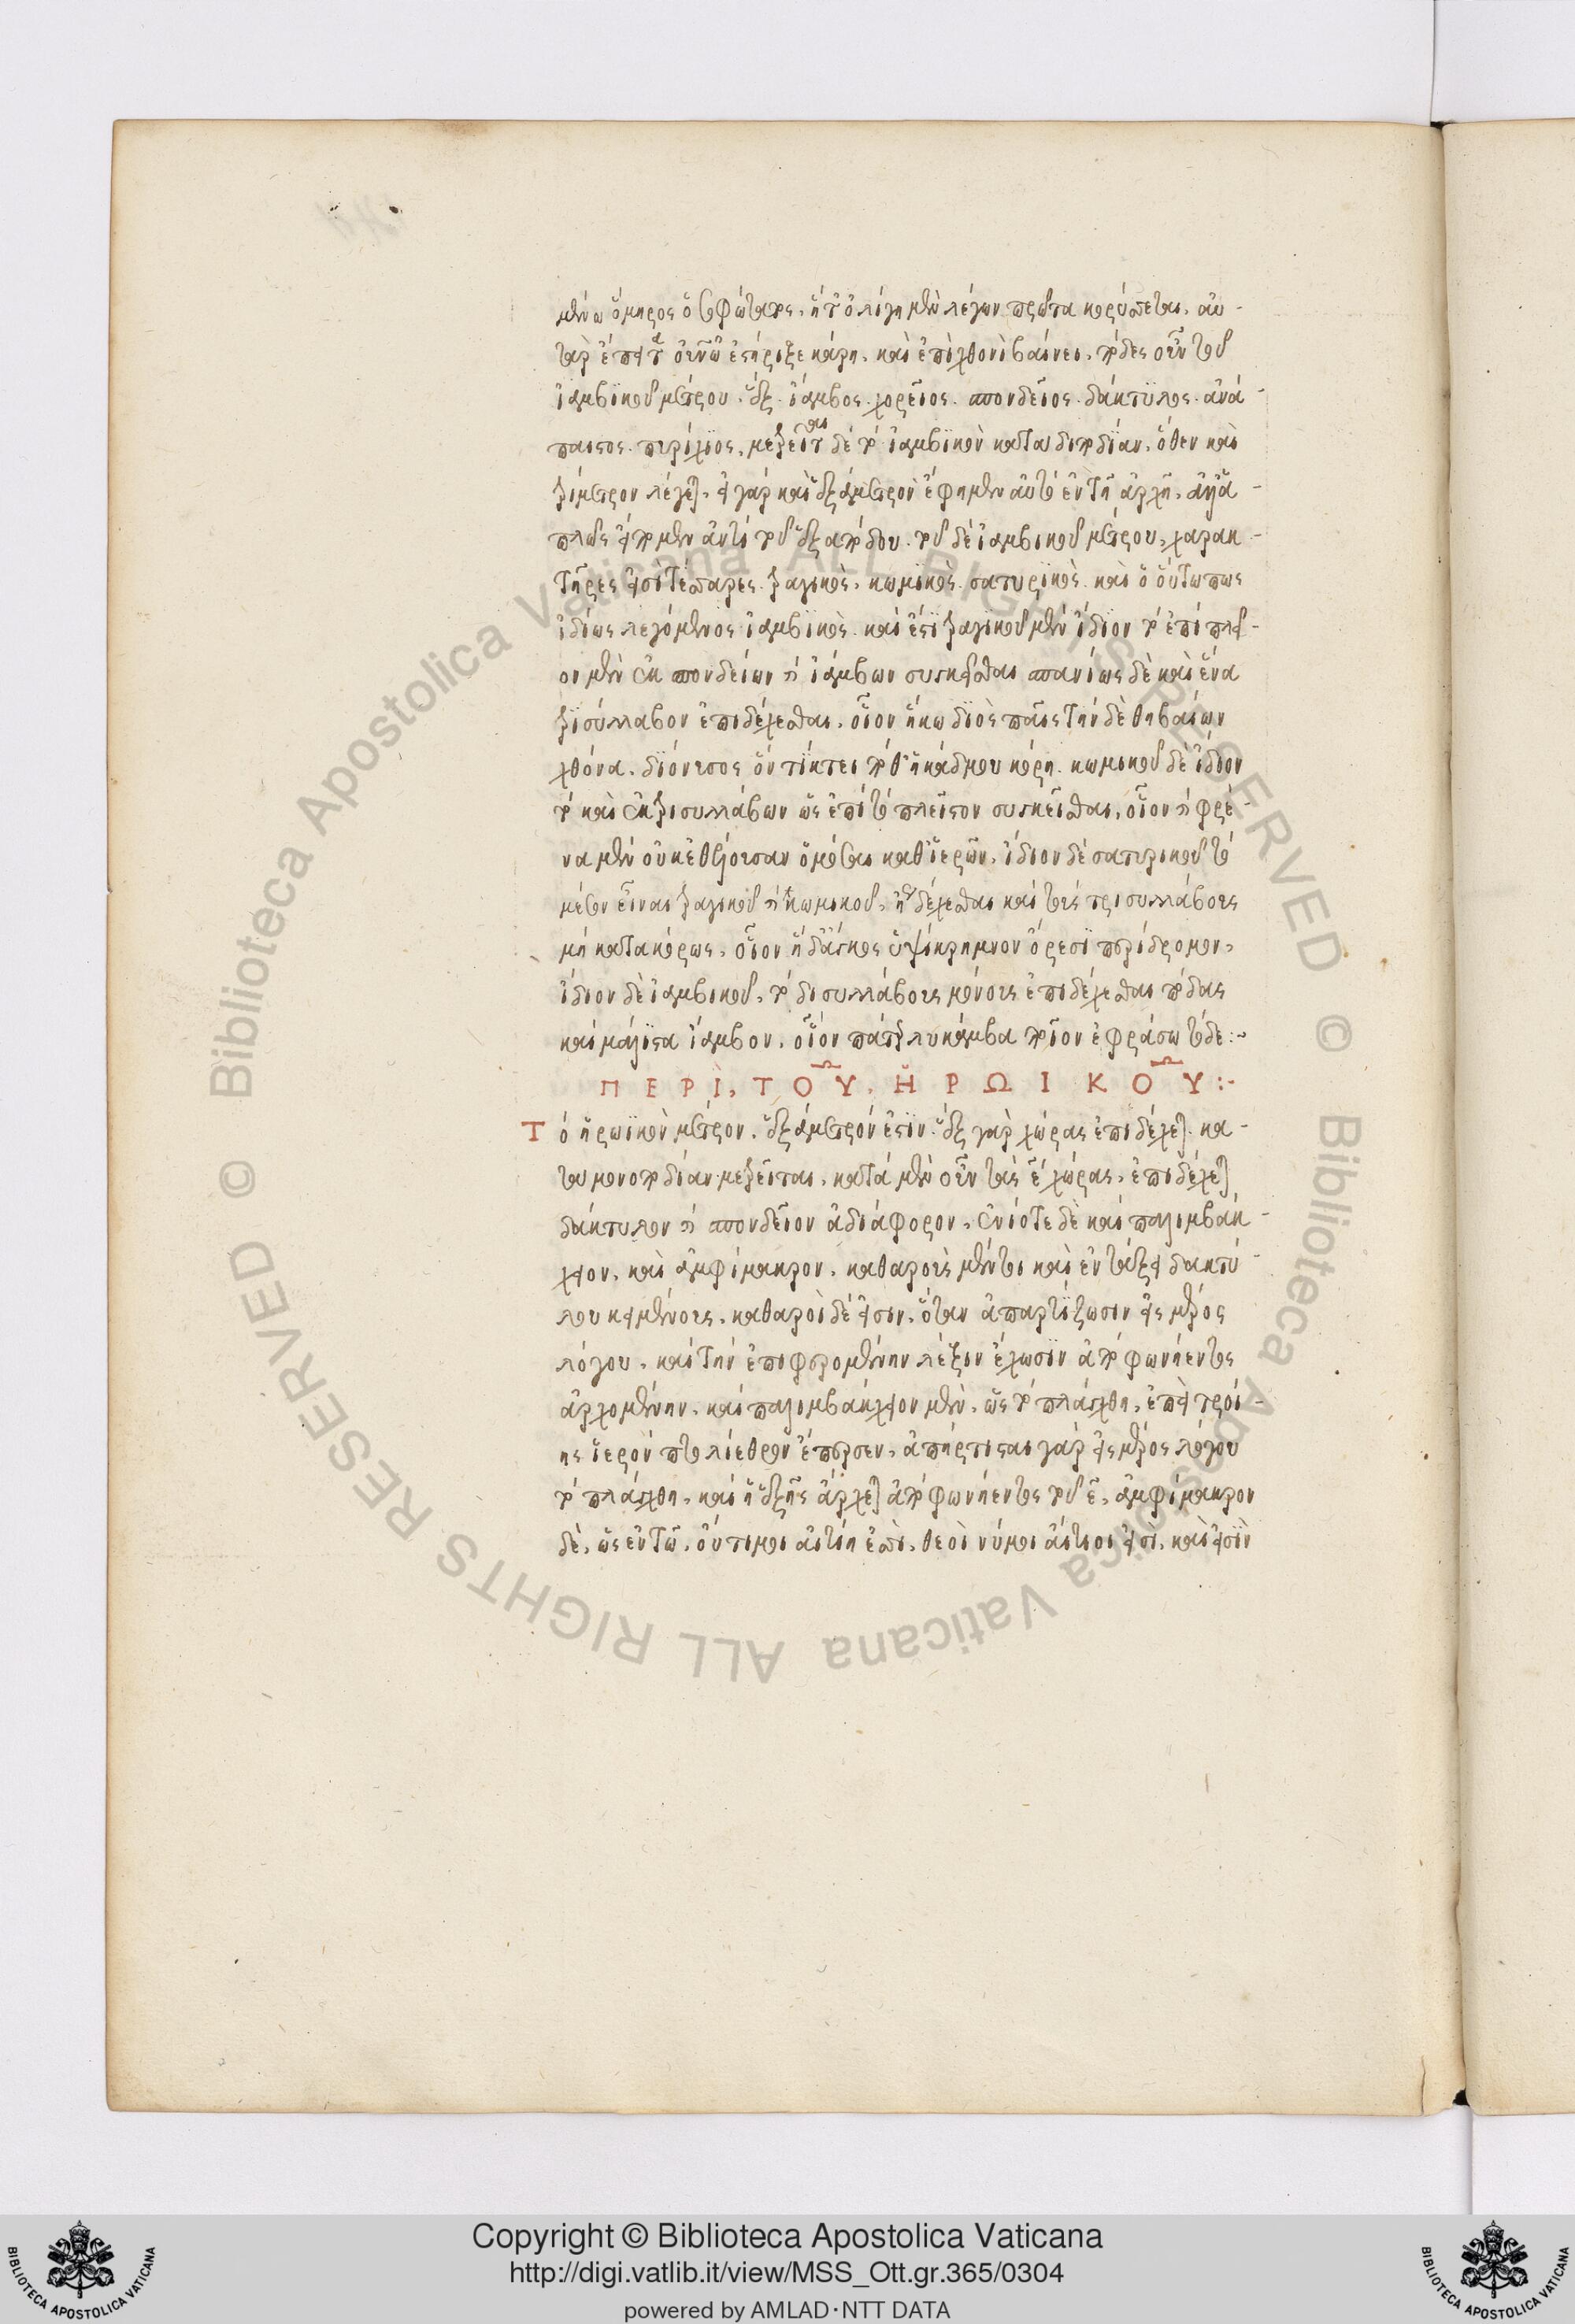 μένω ὅμηρος ὁ σοφώτατος, ἥτ' ὀλίγη μὲν λέγων πρῶτα κορύσσεται, αὐ-
τὰρ ἔπειτα οὐρανῷ ἐστήριξε κάρη, καὶ ἐπὶ χθονὶ βαίνει, πόδες οὖν τοῦ
ἰαμβικοῦ μέτρου ἕξ. ἴαμβος. χορεῖος. σπονδεῖος. δάκτυλος. ἀνά-
παιστος. πυρίχιος. μετρεῖται δὲ τὸ ἰαμβικὸν κατὰ διποδίαν, ὅθεν καὶ
τρίμετρον λέγεται, εἰ γὰρ καὶ ἑξάμετρον ἔφημεν αὐτὸ ἐν τῇ ἀρχῇ, ἀλλ' ἁ-
πλῶς εἴπομεν ἀντὶ τοῦ ἑξαπόδου. τοῦ δὲ ἰαμβικοῦ μέτρου, χαρακ-
τῆρες εἰσὶ τέσσαρες. τραγικὸς. κωμικὸς. σατυρικὸς. καὶ ὁ οὕτω πως
ἰδίως λεγόμενος ἰαμβικὸς. καὶ ἔστι τραγικοῦ μὲν ἴδιον τὸ ἐπὶ πλεῖ-
ον μὲν ἐκ σπονδείων ἢ ἰάμβων συγκεῖσθαι σπανίως δὲ καὶ ἕνα
τρισύλλαβον ἐπιδέχεσθαι, οἷον ἥκω διὸς παῖς τήνδε θηβαίων
χθόνα. διόνυσος ὃν τίκτει ποθ' ἡ κάδμου κόρη. κωμικοῦ δὲ ἴδιον
τὸ καὶ ἐκ τρισυλλάβων ὡς ἐπὶ τὸ πλεῖστον συγκεῖσθαι, οἷον ἡ φρέ-
μέσον εἶναι τραγικοῦ ἢ κωμικοῦ, δέχεσθαι καὶ τοὺς τρισυλλάβους
μὴ κατακόρως, οἷον ὑψίκρημνον ὄρεσι περίδρομον,
ἴδιον δὲ ἰαμβικοῦ, τὸ δισυλλάβους μόνους ἐπιδέχεσθαι πόδας
καὶ μάλιστα ἴαμβον, οἷον πάτερ λυκάμβα ποῖον ἐφράσω τόδε:-
ΠΕΡῚ, ΤΟΥ͂, ἩΡΩΙΚΟΥ͂:-
Τὸ ἡρωϊκὸν μέτρον, ἑξάμετρόν ἐστιν. ἓξ γὰρ χώρας ἐπιδέχεται. κα-
τὰ μονοποδίαν μετρεῖται, κατὰ μὲν οὖν τὰς ε χώρας, ἐπιδέχεται
δάκτυλον ἢ σπονδεῖον ἀδιάφορον, ἐνίοτε δὲ καὶ παλιμβάκ-
χειον, καὶ ἀμφίμακρον, καθαροὺς μέντοι καὶ ἐν τάξει δακτύ-
λου κειμένους. καθαροὶ δέ εἰσιν, ὅταν ἀπαρτίζωσιν εἰς μέρος
λόγου, καὶ τὴν ἐπιφερομένην λέξιν ἔχωσιν ἀπὸ φωνήεντος
ἀρχομένην, καὶ παλιμβάκχειον μὲν, ὡς τὸ πλάγχθη, ἐπεὶ τροί-
ης ἱερὸν πτολίεθρον ἔπερσεν, ἀπήρτισται γὰρ εἰς μέρος λόγου
τὸ πλάγχθη, καὶ ἡ ἑξῆς ἄρχεται ἀπὸ φωνήεντος τοῦ ε, ἀμφίμακρον
δὲ, ὡς ἐν τῷ, οὔτι μοι αἰτίη ἐσσὶ, θεοὶ νύ μοι αἴτιοί εἰσι, καὶ εἰσὶν